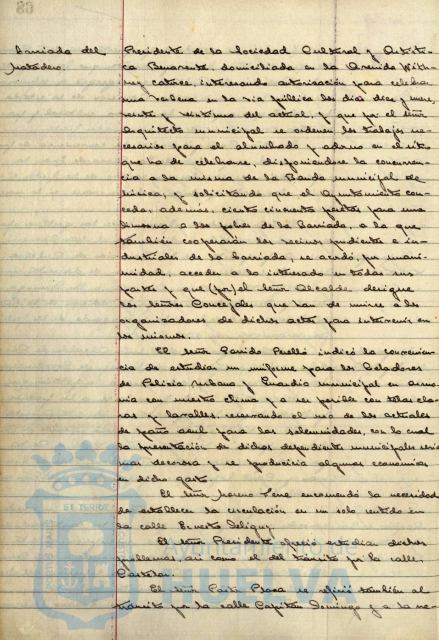 83
Barriada del
Matadero.
Presidente de la Sociedad Cultural y Artísti-
ca Benavente, domiciliada en la Avenida
catorce, interesando autorización para celebrar
una verbena en la vía pública los días diez y nueve,
veinte y veintiuno del actual, y que por el Señor
Arquitecto municipal se ordenen los trabajos ne-
cesarios para el alumbrado y adorno en el sitio
que ha de celebrarse, disponiéndose la concurren-
cia a la misma de la Banda municipal de
Música, y solicitando que el Ayuntamiento con-
ceda, además, ciento cincuenta pesetas para una
limosna a los pobres de la Barriada, a la que
también cooperarán los vecinos pudientes e in-
dustriales de la barriada, se acordó, por unani-
midad, acceder a lo interesado en todas sus
partes y que (por) el Señor Alcalde designe
los Señores Concejales que han de unirse a los
organizadores de dichos actos para intervenir en
los mismos.
El Señor Garrido Perelló indicó la convenien-
cia de estudiar un uniforme para los Celadores
de Policía Urbana y Guardia municipal en armo-
nía con nuestro clima y a ser posible con telas cla-
ras y lavables, reservando el uso de los actuales
de paño azul para las solemnidades, con lo cual
la presentación de dichos dependientes municipales sería
mas decorosa y se produciría algunas economías
en dicho gasto.
El Señor encomendó la necesidad
de establecer la circulación en un solo sentido en
la calle Ernesto Deligny.
El Señor Presidente ofreció estudiar dichos
problemas, así como el del tránsito por la calle
Castelar.
El Señor Plaza se refirió también al
tránsito por la calle Capitán Domingo y a la ne-
HUELVA